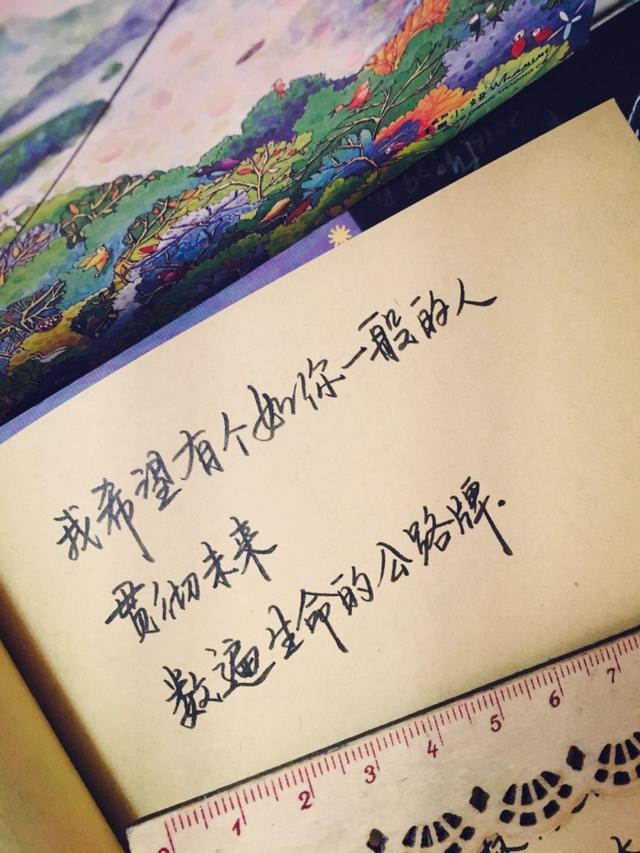 我希望有个如你一般的人
贯彻未来
数遍生命的公路牌.
0 1 2 3 4 5 6 7